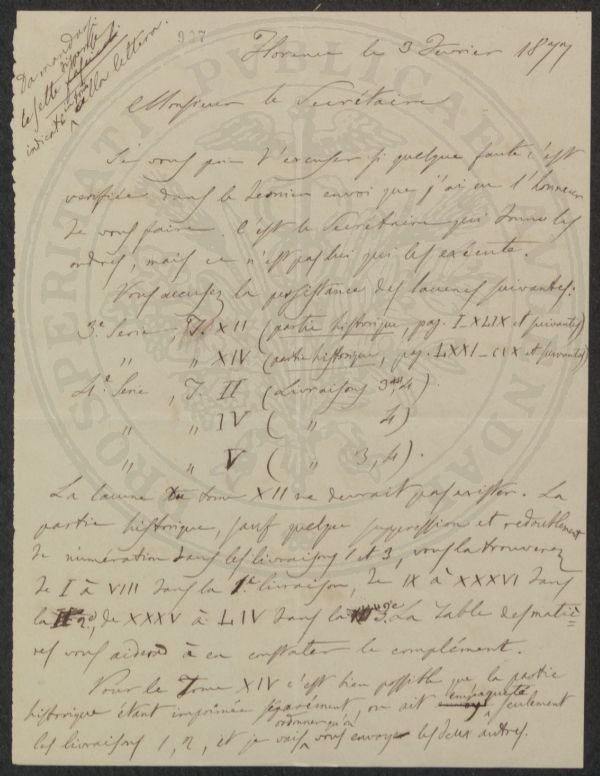 Da mandarsi
le sette dispense
indicate in fine
della lettera.
927
Florence le 3 Fevrier 1877
Monsieur le Secrétaire
Je vous prie d'excuser si quelque faute s'est
verifiée dans le dernier envoi que j'ai eu l'honneur
de vous faire. C'est le Secrétaire qui donne les
ordres, mais ce n'est pas lui qui les exécute.
Vous accusez la persistance des lacunes suivantes:
3.e Serie, T. XII (partie historique, pag. I_XLIX et suivantes)
" " XIV (partie historique, pag. LXXI_CIX et suivantes)
4.e Serie, T. II (Livraisons 3, 4).
" " IV ( " 4)
" " V ( " 3, 4).
La lacune du tome XII ne devrait pas exister. La
partie historique, sauf quelque suppression et redoublement
de numération dans les livraisons 1 et 3, vous la trouverez
de I à VIII dans la 1.e livraison, de IX à XXXVI dans
la 2.d, de XXXV à LIV dans la 3.e La table des matiè=
res vous aidera à en constater le complément.
Pour le Tome XIV c'est bien possible que la partie
historique étant imprimée séparément, on ait empaqueté seulement
les livraisons 1, 2, et je vais ordonner qu'on vous envoye les deux autres.
PROSPERITATI PVBLICAE AVGENDA